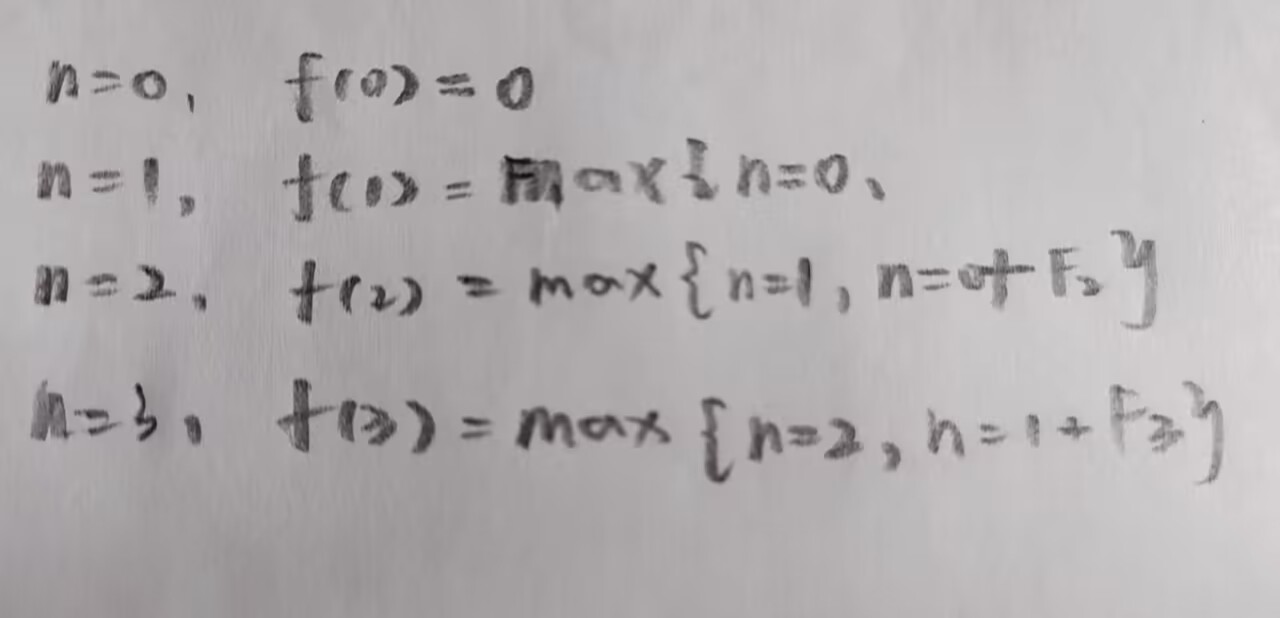 n=0, f(0)=0
n=1, f(1)=max{n=0、
n=2, f(2)=max{n=1, n=0+F₂}
n=3, f(3)=max{n=2, n=1+F₃}